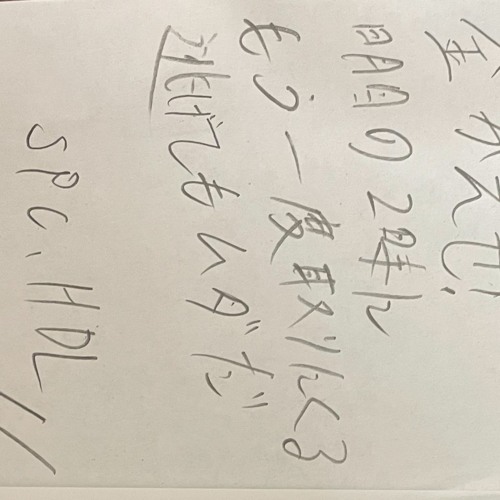 金かえせ!
明日の2時に
もう一度取りにくる
逃げてもムダだ
SPC、HDL //